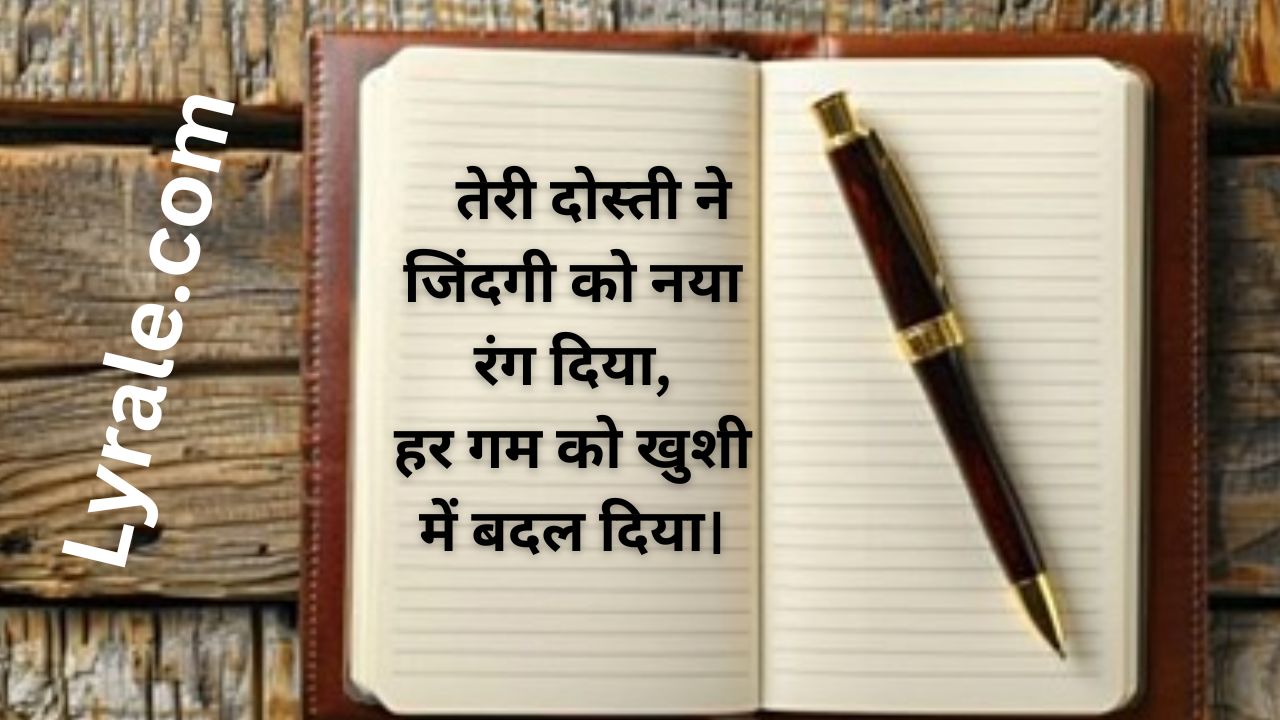 Lyrale.com
तेरी दोस्ती ने
जिंदगी को नया
रंग दिया,
हर गम को खुशी
में बदल दिया।